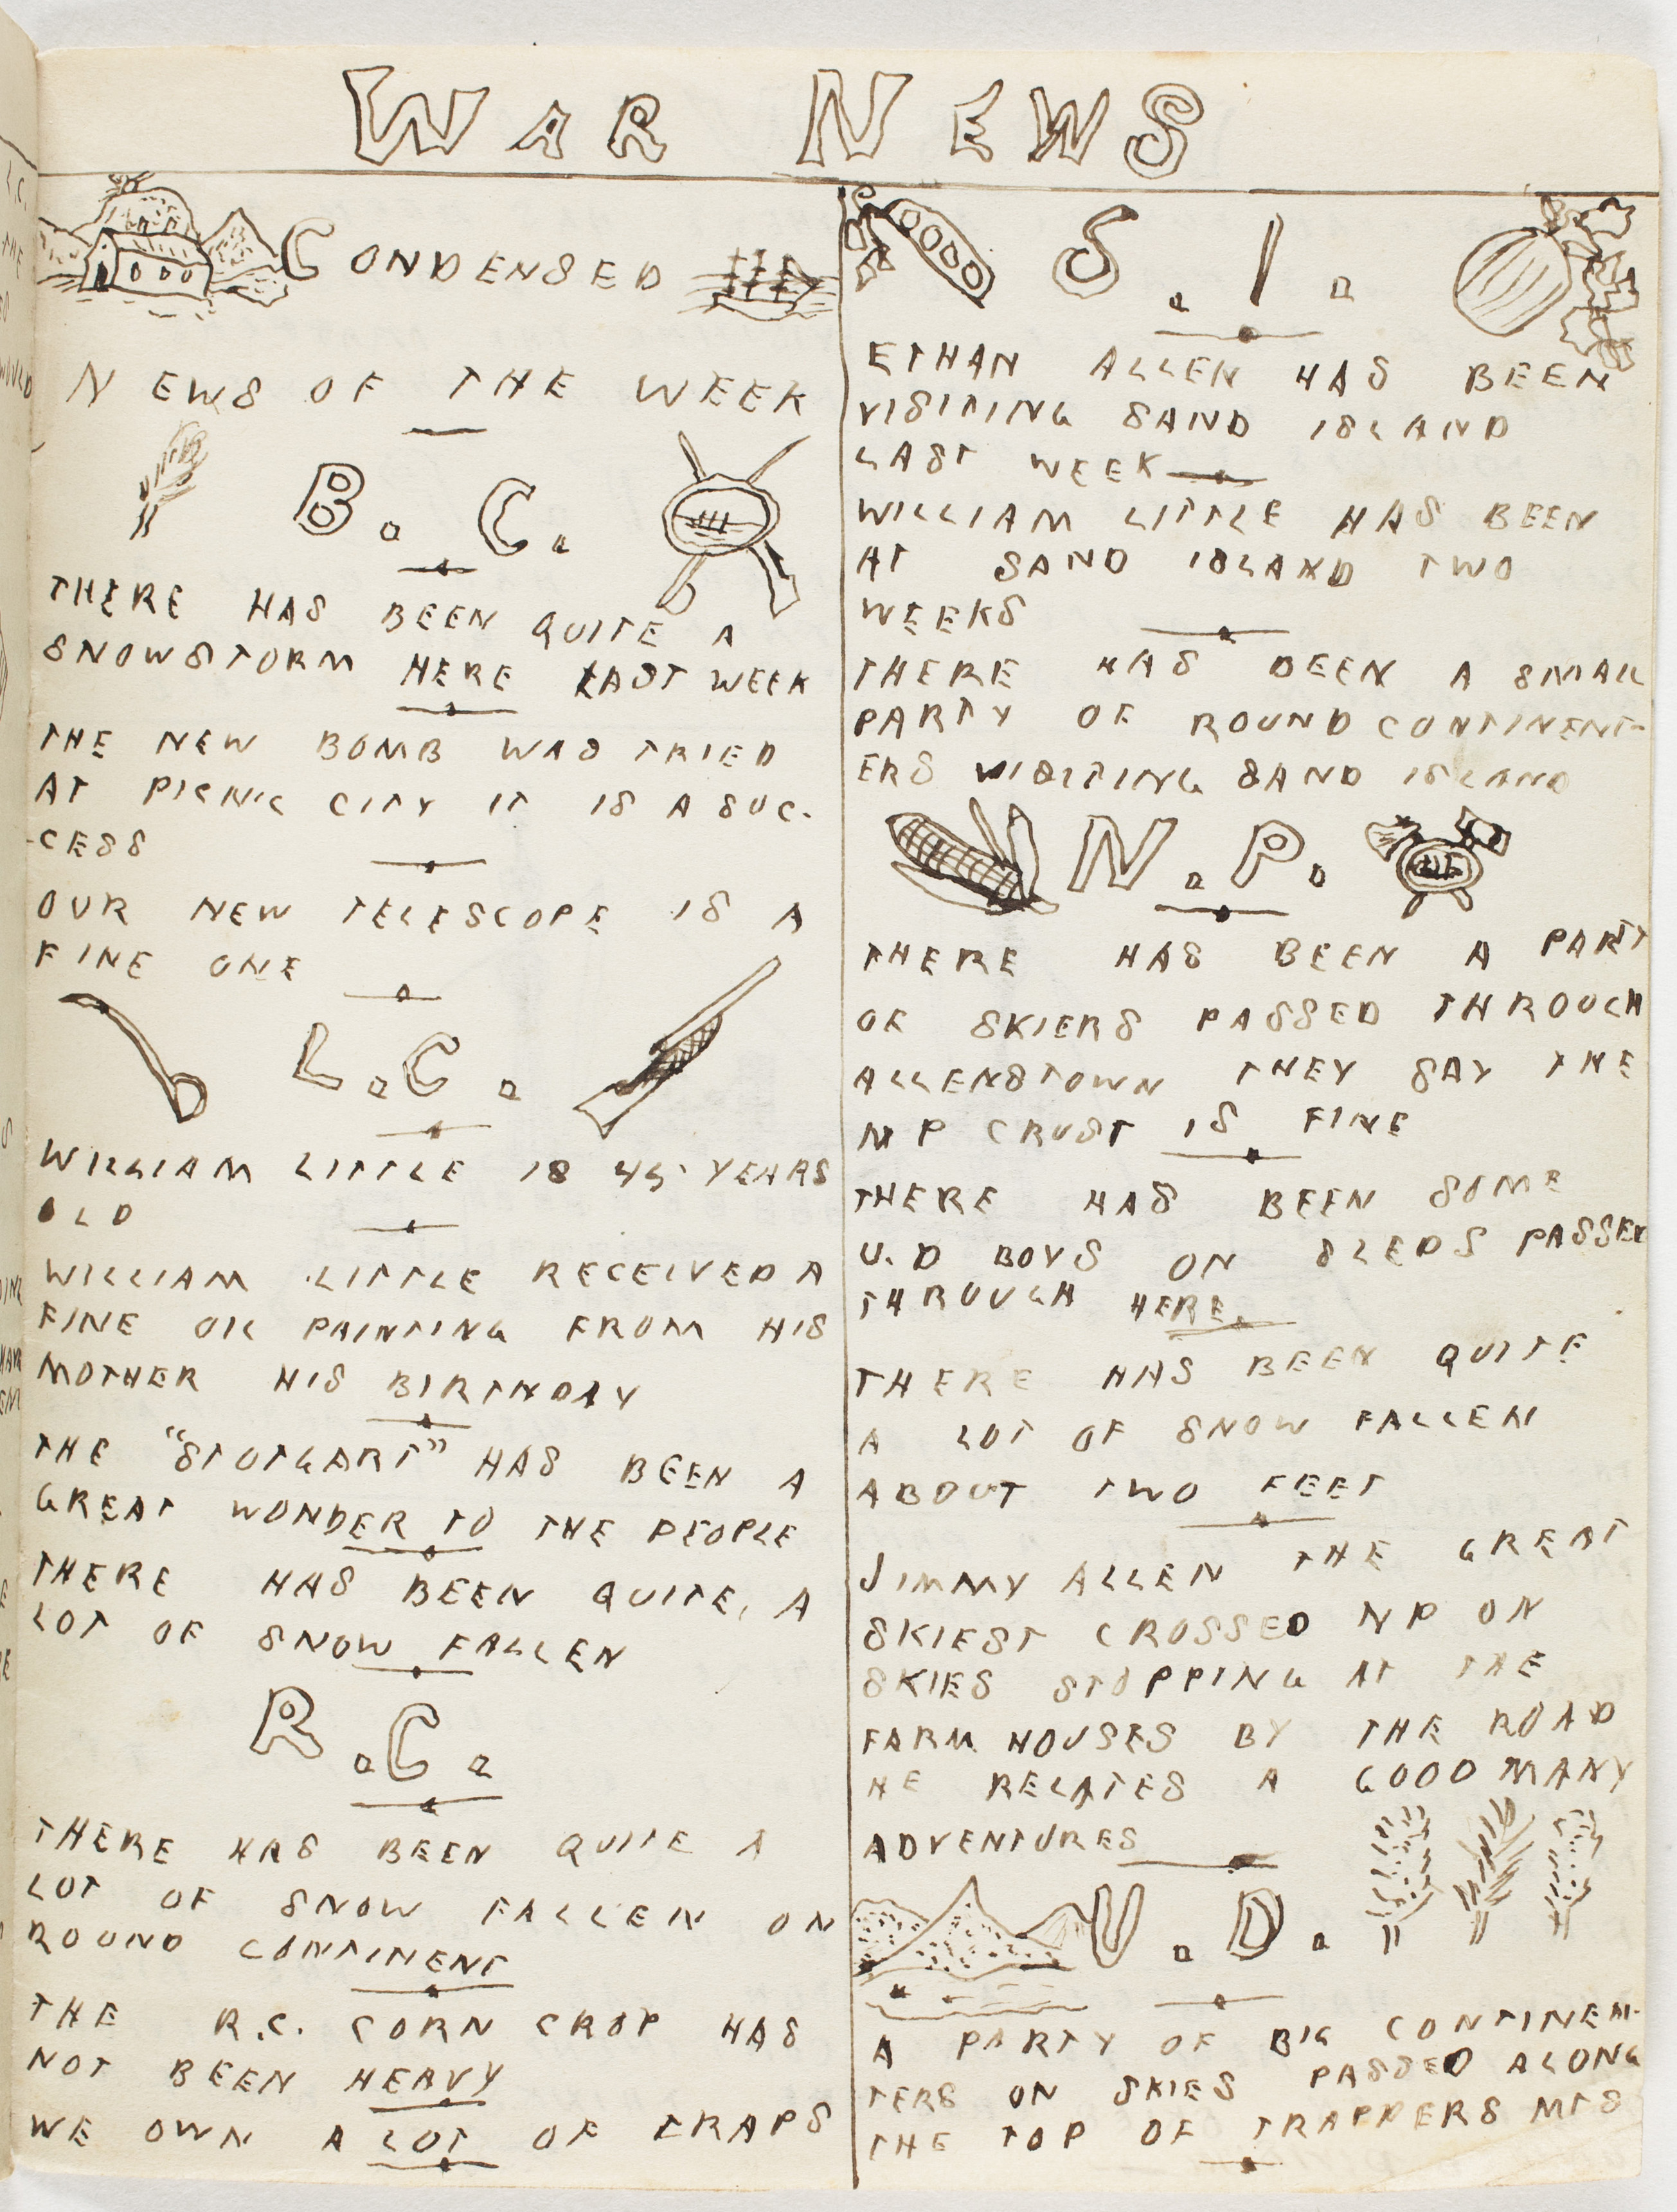 WAR NEWS
CONDENSED
NEWS OF THE WEEK
B. C.
THERE HAS BEEN QUITE A
SNOWSTORM HERE LAST WEEK
THE NEW BOMB WAS TRIED
AT PICNIC CITY IT IS A SUC-
-CESS
OUR NEW TELESCOPE IS A
FINE ONE
L. C.
WILLIAM LITTLE IS 45 YEARS
OLD
WILLIAM LITTLE RECEIVED A
FINE OIL PAINTING FROM HIS
MOTHER HIS BIRTHDAY
THE "STOTGART" HAS BEEN A
GREAT WONDER TO THE PEOPLE
THERE HAS BEEN QUITE, A
LOT OF SNOW FALLEN
R. C.
THERE HAS BEEN QUITE A
LOT OF SNOW FALLEN ON
ROUND CONTINENT
THE R.C. CORN CROP HAS
NOT BEEN HEAVY
WE OWN A LOT OF TRAPS
S. I.
ETHAN ALLEN HAS BEEN
VISITING SAND ISLAND
LAST WEEK
WILLIAM LITTLE HAS BEEN
AT SAND ISLAND TWO
WEEKS
THERE HAS BEEN A SMALL
PARTY OF ROUND CONTINENT-
ERS VISITING SAND ISLAND
N. P.
THERE HAS BEEN A PARTY
OF SKIERS PASSED THROUGH
ALLENSTOWN THEY SAY THE
N P CRUST IS FINE
THERE HAS BEEN SOME
U.D BOYS ON SLEDS PASSED
THROUGH HERE.
THERE HAS BEEN QUITE
A LOT OF SNOW FALLEN
ABOUT TWO FEET
JIMMY ALLEN THE GREAT
SKIEST CROSSED NP ON
SKIES STOPPING AT THE
FARM HOUSES BY THE ROAD
HE RELATES A GOOD MANY
ADVENTURES
U. D.
A PARTY OF BIG CONTINEN-
TERS ON SKIES PASSED ALONG
THE TOP OF TRAPPERS MTS